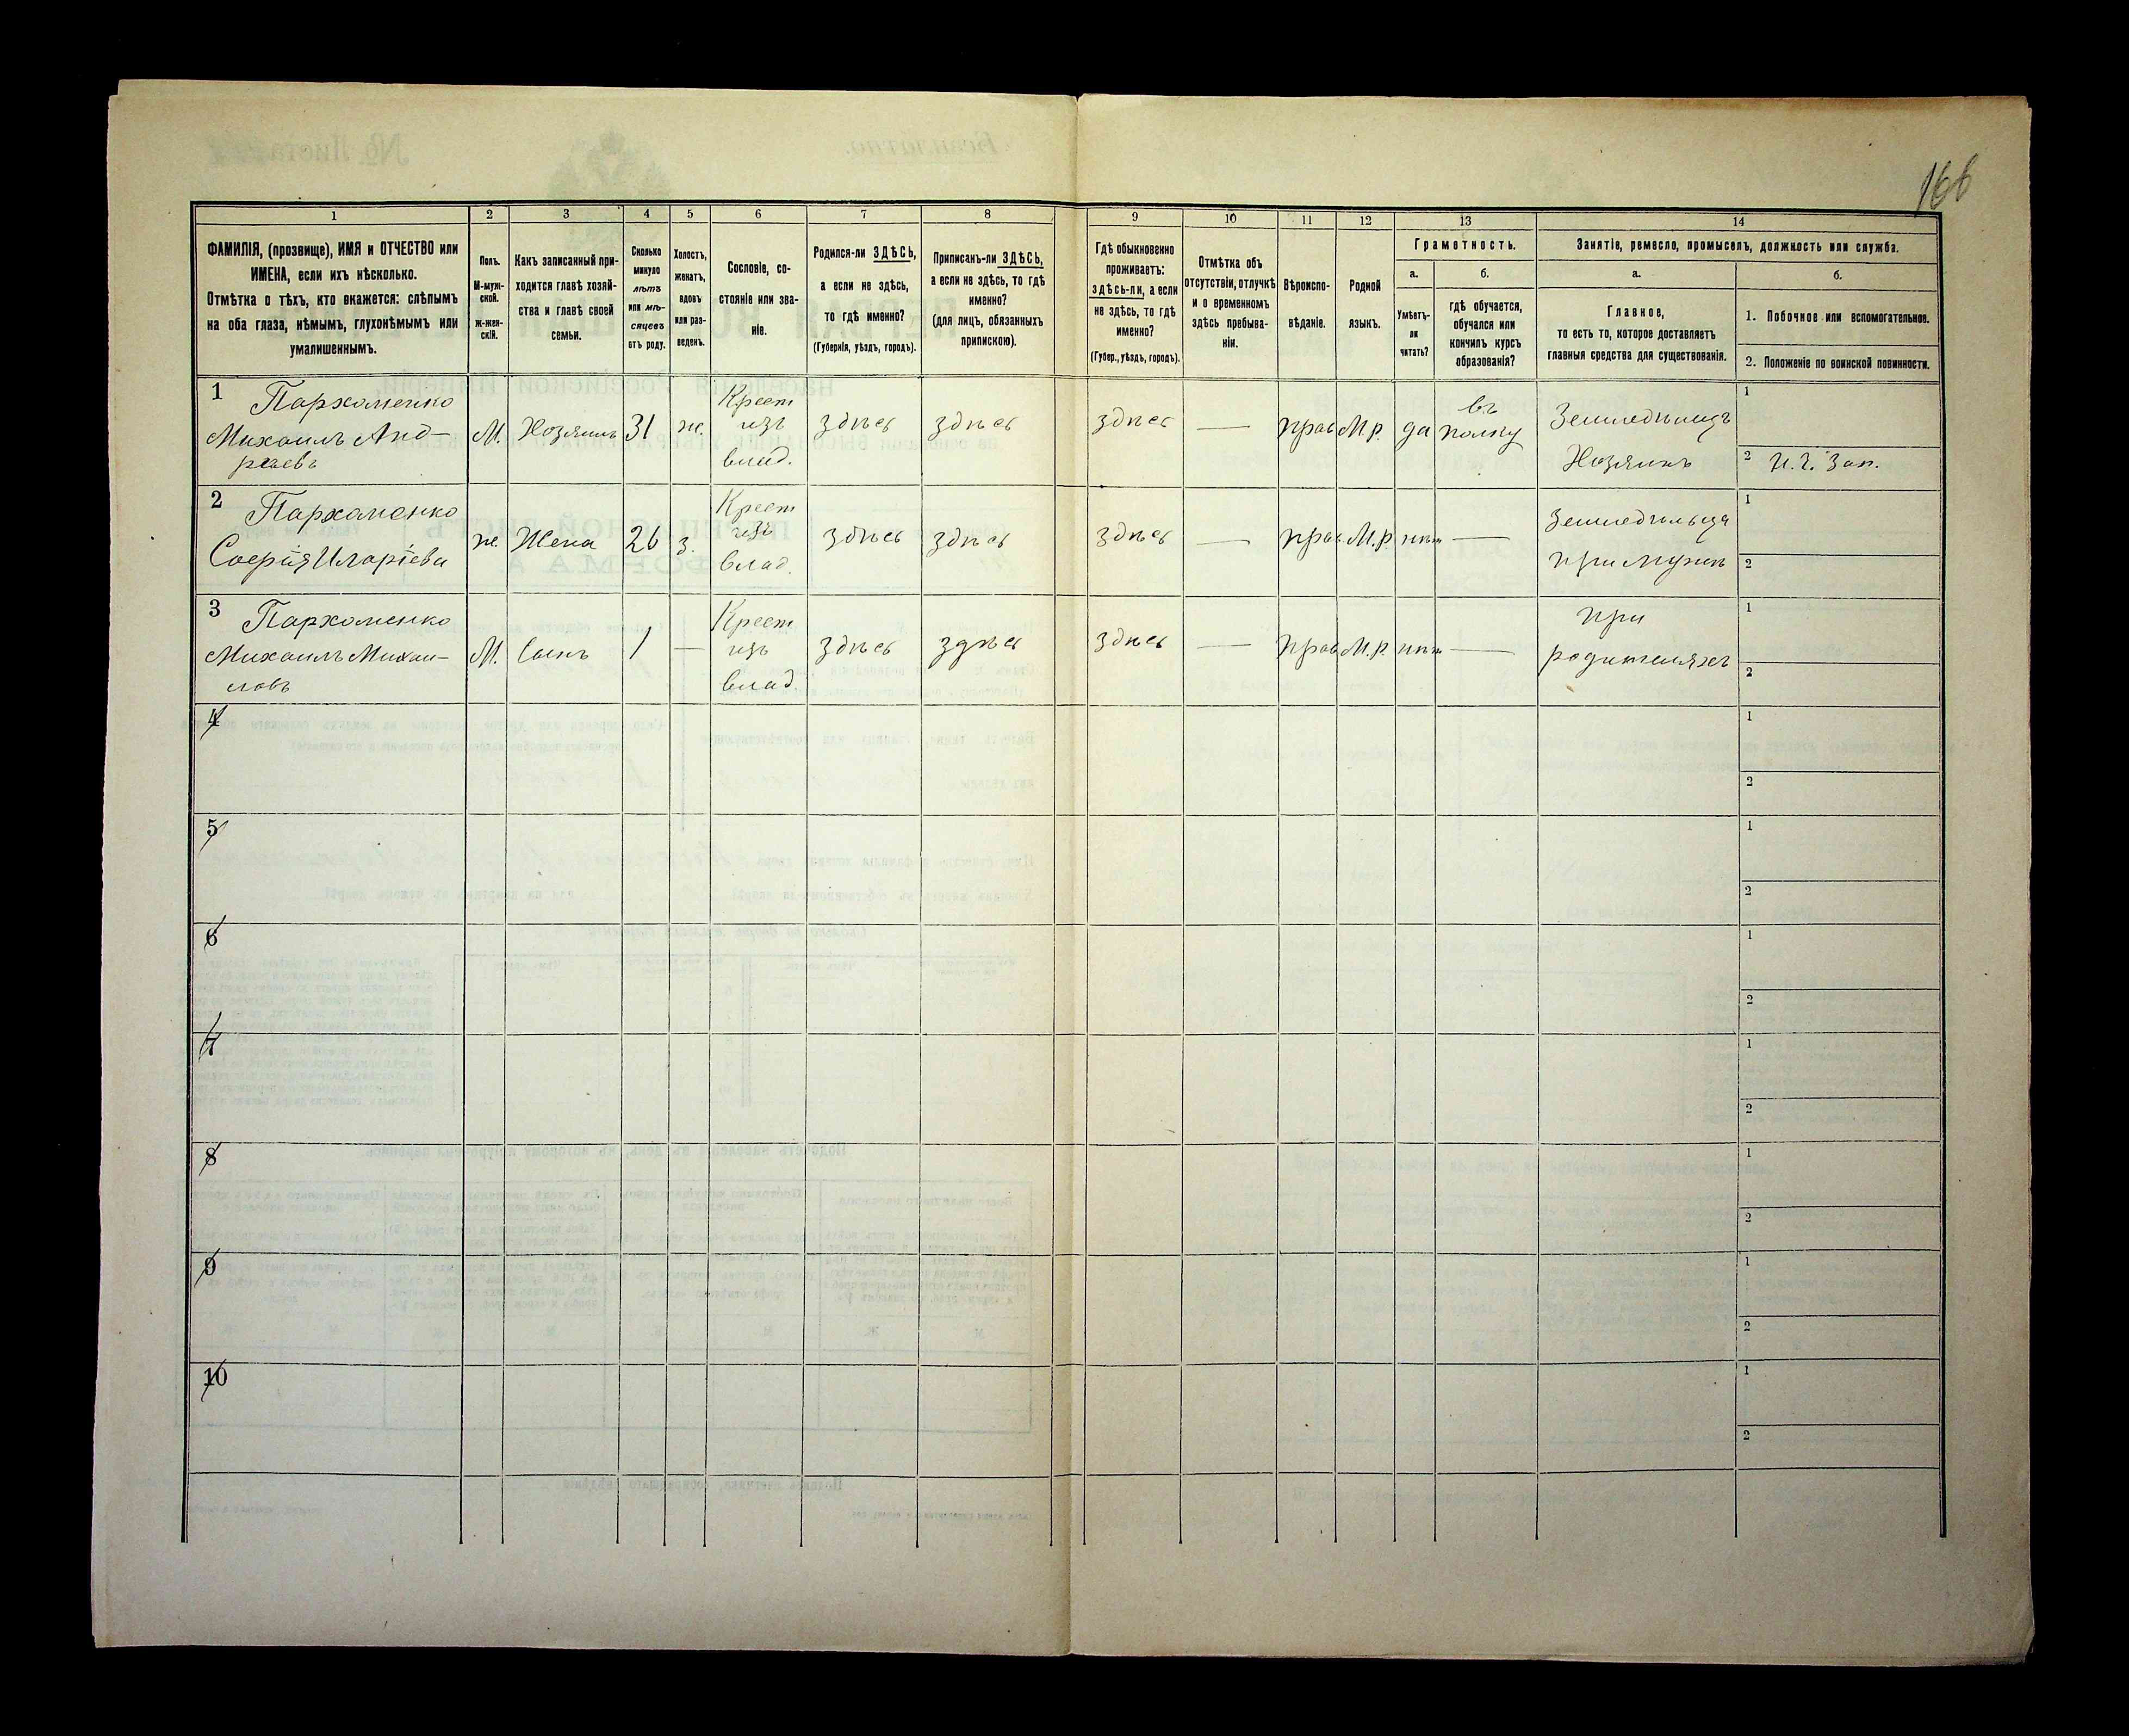 166
1 2 3 4 5 6 7 8 9 10 11 12 13 14
ФАМИЛІЯ, (прозвище), ИМЯ и ОТЧЕСТВО или
ИМЕНА, если ихъ нѣсколько.
Отмѣтка о тѣхъ, кто окажется: слѣпымъ
на оба глаза, нѣмымъ, глухонѣмымъ или
умалишеннымъ.
Полъ.
М-муж-
ской.
ж-жен-
скій.
Какъ записанный при-
ходится главѣ хозяй-
ства и главѣ своей
семьи.
Сколько
минуло
лѣтъ
или мѣ-
сяцевъ
отъ роду.
Холостъ,
женатъ,
вдовъ
или раз-
веденъ.
Сословіе, со-
стояніе или зва-
ніе.
Родился-ли ЗДѢСЬ,
а если не здѣсь,
то гдѣ именно?
(Губернія, уѣздъ, городъ).
Приписанъ-ли ЗДѢСЬ,
а если не здѣсь, то гдѣ
именно?
(для лицъ, обязанныхъ
припискою).
Гдѣ обыкновенно
проживаетъ:
здѣсь-ли, а если
не здѣсь, то гдѣ
именно?
(Губер., уѣздъ, городъ).
Отмѣтка объ
отсутствіи, отлучкѣ
и о временномъ
здѣсь пребыва-
ніи.
Вѣроиспо-
вѣданіе.
Родной
языкъ.
Грамотность.
а.
Умѣетъ-
ли
читать?
б.
гдѣ обучается,
обучался или
кончилъ курсъ
образованія?
Занятіе, ремесло, промыселъ, должность или служба.
а.
Главное,
то есть то, которое доставляетъ
главныя средства для существованія.
б.
1. Побочное или вспомогательное.
2. Положеніе по воинской повинности.
1 Пархоменко
Михаилъ Анд-
реевъ
М. Хозяинъ 31 же.
Крест
изъ
влад.
здѣсь здѣсь здѣсь — прав М.р. да
въ
полку
Земледѣлецъ
Хозяинъ
1
2 Н. Ч. Зап.
2 Пархоменко
Софія Иларіева
же. Жена 26 з.
Крест
изъ
влад.
здѣсь здѣсь здѣсь — прав. М.р нѣт —
Земледѣльца
при мужѣ
1
2
3 Пархоменко
Михаилъ Михаи-
ловъ
М. Сынъ 1 —
Крест
изъ
влад
здѣсь здѣсь здѣсь — прав М.р. нѣт —
при
родителяхъ
1
2
4 1
2
5 1
2
6 1
2
7 1
2
8 1
2
9 1
2
10 1
2